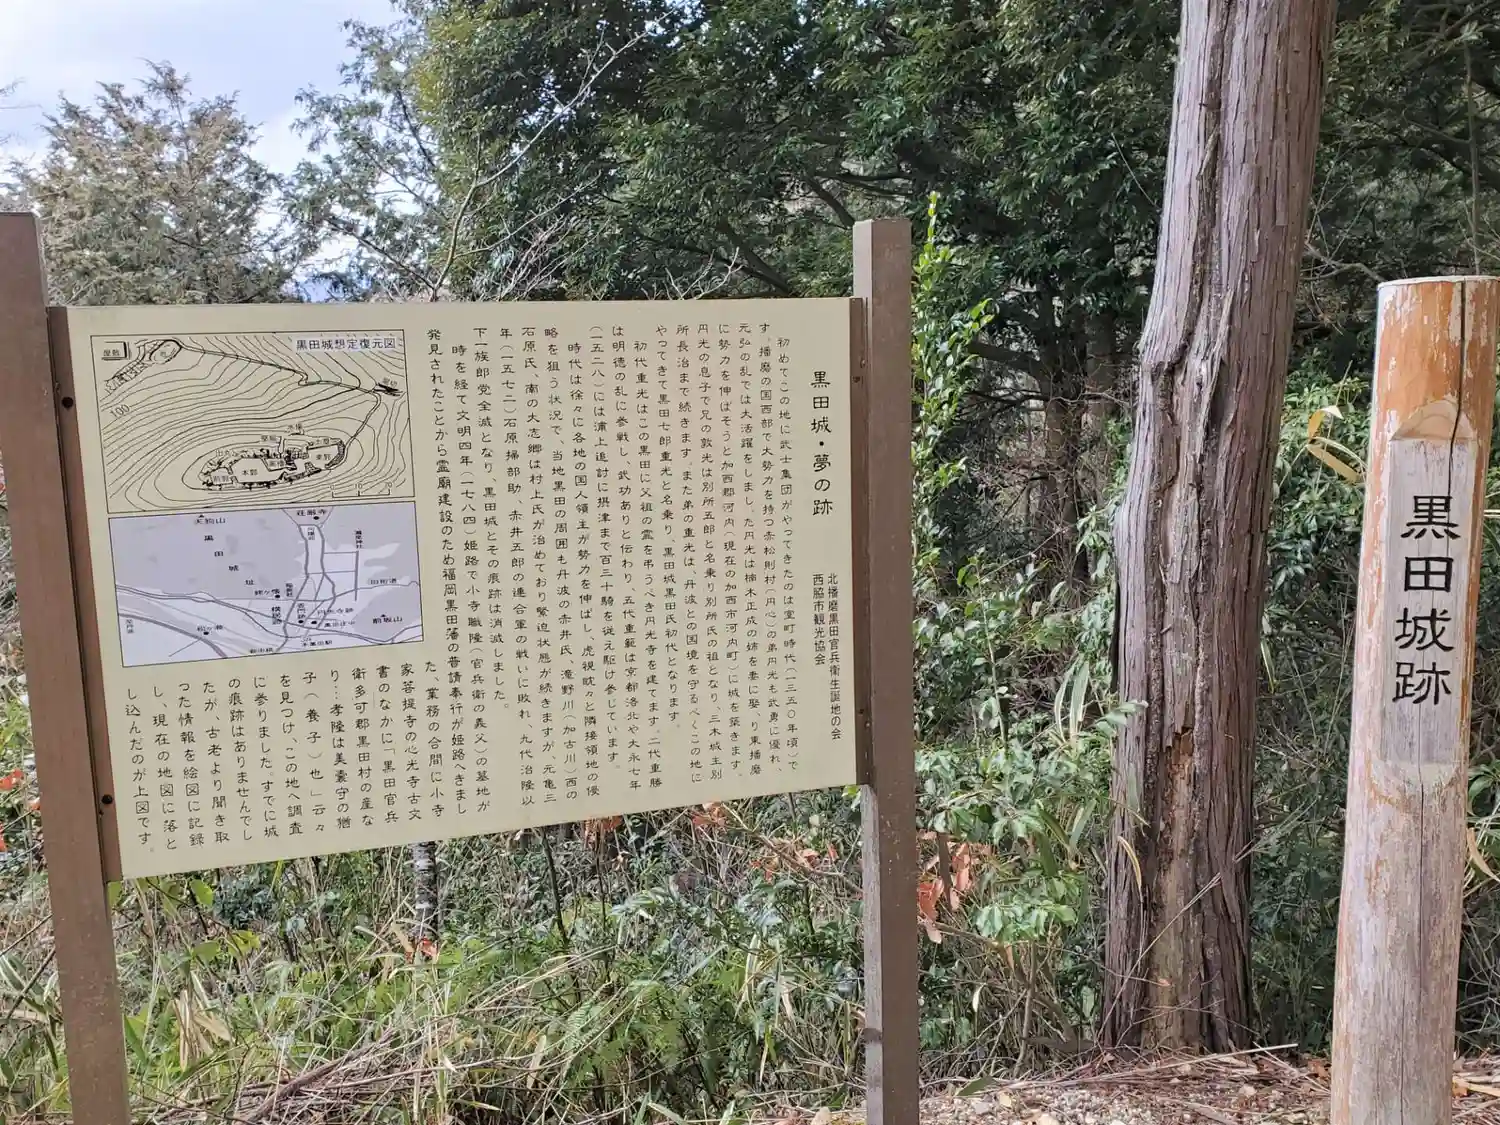 黒田城・夢の跡
北播磨黒田官兵衛生誕地の会
西脇市観光協会
初めてこの地に武士集団がやってきたのは室町時代(一三五〇年頃)で
す。播磨の国西部で大勢力を持つ赤松則村(円心)の弟円光も武勇に優れ、
元弘の乱では大活躍をしました。円光は楠木正成の姉を妻に娶り、東播磨
に勢力を伸ばそうと加西郡河内(現在の加西市河内町)に城を築きます。
円光の息子で兄の敦光は別所五郎と名乗り別所氏の祖となり、三木城主別
所長治まで続きます。また弟の重光は、丹波との国境を守るべくこの地に
やってきて黒田七郎重光と名乗り、黒田城黒田氏初代となります。
初代重光はこの黒田に父祖の霊を弔うべき円光寺を建てます。二代重勝
は明徳の乱に参戦し、武功ありと伝わり、五代重範は京都洛北や大永七年
(一五二八)には浦上追討に摂津まで百三十騎を従え駆け参じています。
時代は徐々に各地の国人領主が勢力を伸ばし、虎視眈々と隣接領地の優
略を狙う状況で、当地黒田の周囲も丹波の赤井氏、滝野川(加古川)西の
石原氏、南の大志郷は村上氏が治めており緊迫状態が続きますが、元亀三
年(一五七二)石原掃部助、赤井五郎の連合軍の戦いに敗れ、九代治隆以
下一族郎党全滅となり、黒田城とその痕跡は消滅しました。
時を経て文明四年(一七八四)姫路で小寺職隆(官兵衛の義父)の墓地が
発見されたことから霊廟建設のため福岡黒田藩の普請奉行が姫路へきまし
た。業務の合間に小寺
家菩提寺の心光寺古文
書のなかに「黒田官兵
衛多可郡黒田村の産な
り…孝隆は美嚢守の猶
子(養子)也」云々
を見つけ、この地へ調査
に参りました。すでに城
の痕跡はありませんでし
たが、古老より聞き取
った情報を絵図に記録
し、現在の地図に落と
し込んだのが上図です。
黒田城想定復元図
100
本郭
天狗山
荘厳寺
黒田城址
前坂山
黒田城跡